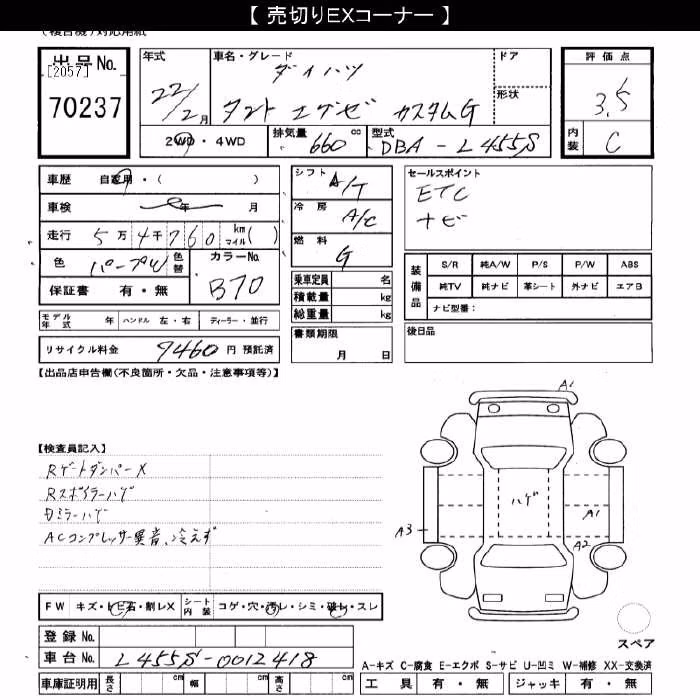 【 売切りEXコーナー 】
(複合機)対応用紙
出品No.
[2057]
70237
年式
22/2月
車名・グレード
ダイハツ
タント エグゼ カスタムG
ドア
形状
評価点
3.5
内装
C
2WD・4WD
排気量
660 cc
型式
DBA - L455S
車歴 自家用・( )
車検 年 月
走行 5万4千760 km マイル( )
色 パープル 色替
カラーNo.
B70
保証書 有・無
シフト A/T
冷房 A/C
燃料 G
乗車定員 名
積載量 kg
総重量 kg
セールスポイント
ETC
ナビ
装備品
S/R 純A/W P/S P/W ABS
純TV 純ナビ 革シート 外ナビ エアB
ナビ型番:
モデル年式 年 ハンドル 左・右 ディーラー・並行
リサイクル料金 9460 円 預託済
書類期限
月 日
後日品
【出品店申告欄(不良箇所・欠品・注意事項等)】
【検査員記入】
RゲートダンパーX
Rスポイラーハゲ
Dミラーハゲ
ACコンプレッサー異音、冷えず
A1
ハゲ
A1
A3
A2
スペア
FW キズ・トビ石・割レX シート内装 コゲ・穴・汚レ・シミ・破レ・スレ
登録No.
車台No. L455S-0012418
車庫証明用 長さ cm 幅 cm 高さ cm
A-キズ C-腐食 E-エクボ S-サビ U-凹ミ W-補修 XX-交換済
工具 有・無 ジャッキ 有・無